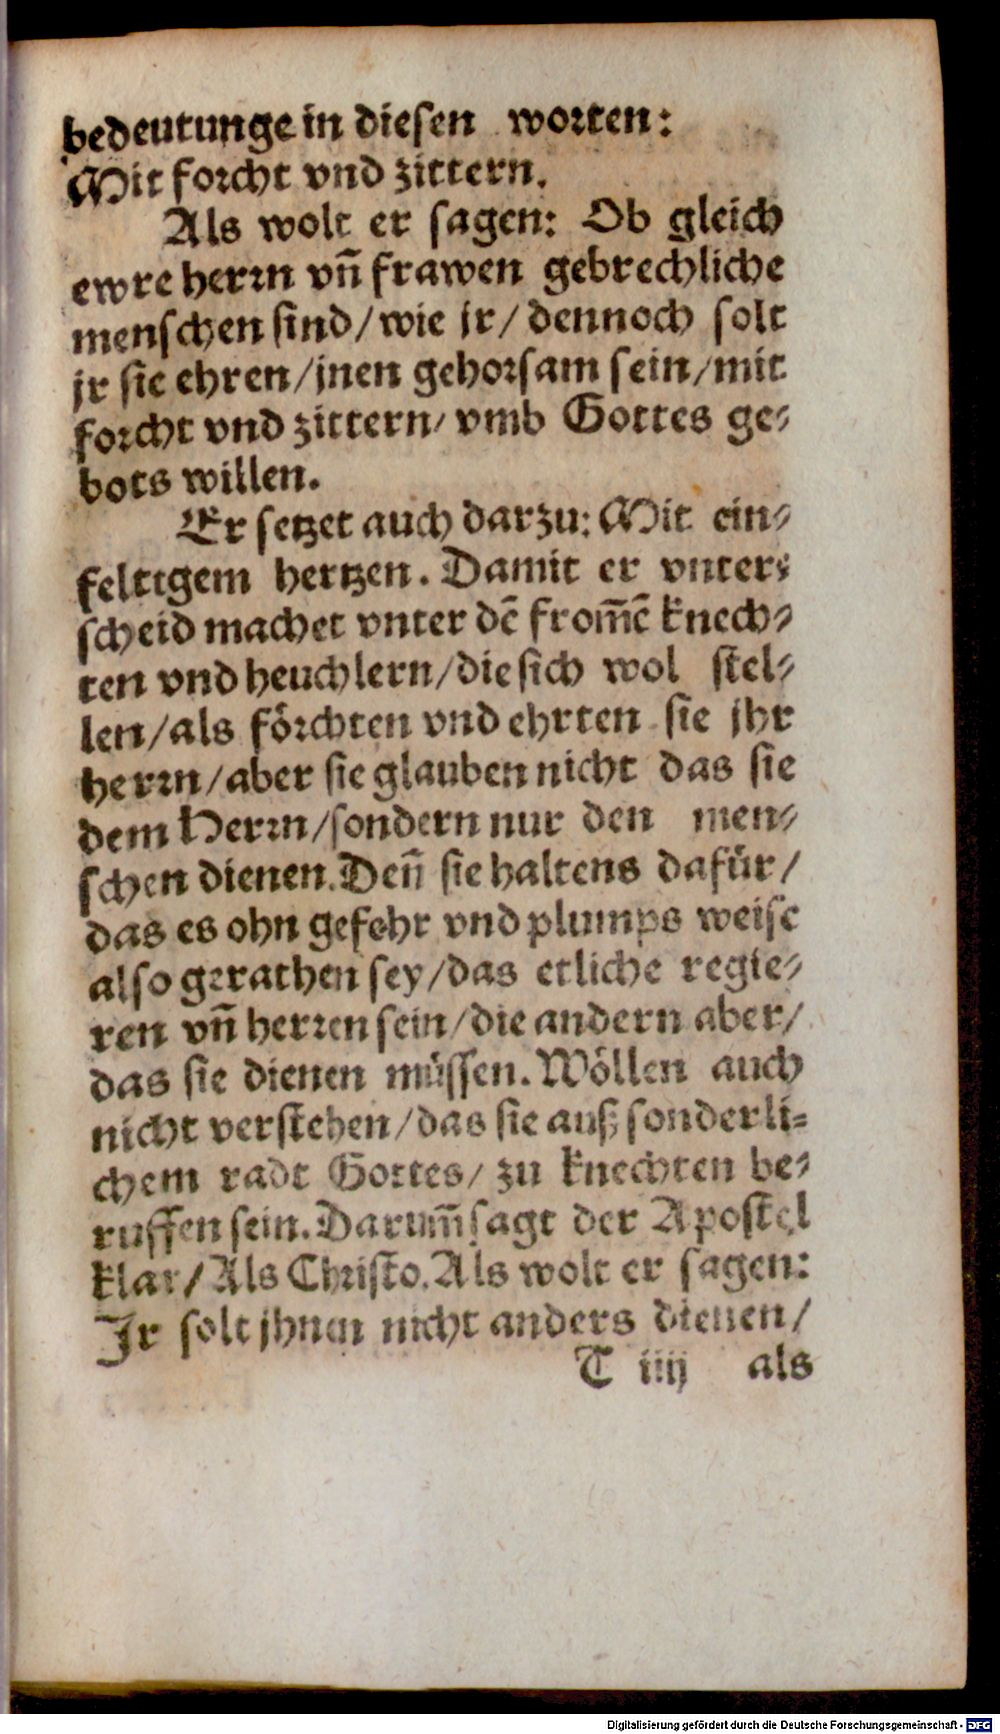 bedeutunge in diesen worten:
Mit forcht vnd zittern.
Als wolt er sagen: Ob gleich
ewre herrn vñ frawen gebrechliche
menschen sind/wie jr/dennoch solt
jr sie ehren/jnen gehorsam sein/mit
forcht vnd zittern/ vmb Gottes ge-
bots willen.
Er setzet auch darzu: Mit ein-
feltigem hertzen. Damit er vnter-
scheid machet vnter dē from̄ē knech-
ten vnd heuchlern/die sich wol stel-
len/als förchten vnd ehrten sie jhr
herrn/aber sie glauben nicht das sie
dem Herrn/sondern nur den men-
schen dienen. Den̄ sie haltens dafür/
das es ohn gefehr vnd plumps weise
also gerathen sey/das etliche regie-
ren vñ herren sein/die andern aber/
das sie dienen müssen. Wöllen auch
nicht verstehen/das sie auß sonderli-
chem radt Gottes/ zu knechten be-
ruffen sein. Darum̄ sagt der Apostel
klar/Als Christo. Als wolt er sagen:
Jr solt jhnen nicht anders dienen/
T iiij als
Digitalisierung gefördert durch die Deutsche Forschungsgemeinschaft - DFG